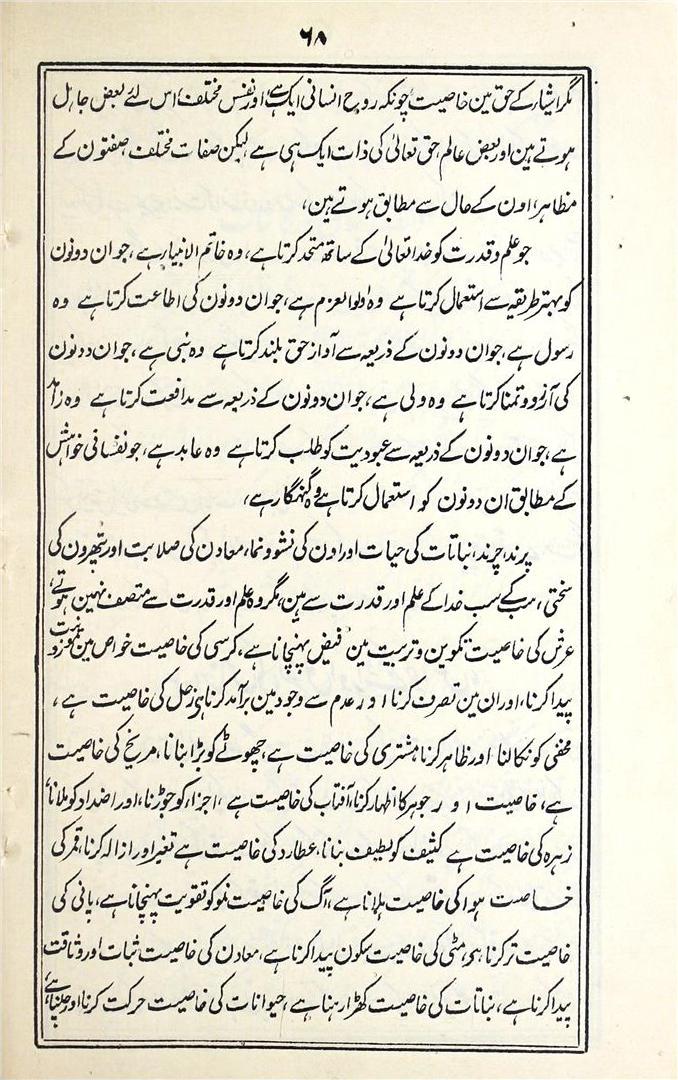 ۶۸
مگر اشیار کے حق مین خاصیت، چونکہ روح انسانی ایک ہے، اور نفس مختلف، اس لئے بعض جاہل
ہوتے ہین اور بعض عالم، حق تعالیٰ کی ذات ایک ہی ہے لیکن صفات مختلف، صفتون کے
مظاہر، اون کے حال سے مطابق ہوتے ہین،
جو علم و قدرت کو خدا تعالیٰ کے ساتھ متحد کرتا ہے، وہ خاتم الانبیار ہے، جو ان دونون
کو بہتر طریقہ سے استعمال کرتا ہے وہ اولوالعزم ہے، جو ان دونون کی اطاعت کرتا ہے وہ
رسول ہے، جو ان دونون کے ذریعہ سے آواز حق بلند کرتا ہے وہ نبی ہے، جو ان دونون
کی آرزو و تمنا کرتا ہے وہ ولی ہے، جو ان دونون کے ذریعہ سے مدافعت کرتا ہے وہ زاہد
ہے، جو ان دونون کے ذریعہ سے عبودیت کو طلب کرتا ہے وہ عابد ہے، جو نفسانی خواہش
کے مطابق ان دونون کو استعمال کرتا ہے وہ گنہگار ہے،
پرند، چرند، نباتات کی حیات اور اون کی نشو و نما، معادن کی صلابت اور پتھرون کی
سختی، سب کے سب خدا کے علم اور قدرت سے ہین، مگر وہ علم اور قدرت سے متصف نہین ہوتے،
عرش کی خاصیت تکوین و تربیت مین فیض پہنچانا ہے، کرسی کی خاصیت خواص مین
پیدا کرنا، اور ان مین تصرف کرنا اور عدم سے وجود مین برآمد کرنا ہی زحل کی خاصیت ہے،
مخفی کو نکالنا اور ظاہر کرنا مشتری کی خاصیت ہے، چھوٹے کو بڑا بنانا، مریخ کی خاصیت
ہے، خاصیت اور جوہر کا اظہار کرنا، آفتاب کی خاصیت ہے، اجزاء کو جوڑنا، اور اضداد کو ملانا،
زہرہ کی خاصیت ہے کثیف کو لطیف بنانا، عطارد کی خاصیت ہے تغیر اور ازالہ کرنا، قمر کی
خاصیت ہوا کی خاصیت ہلانا ہے، آگ کی خاصیت نمو کو تقویت پہنچانا ہے، پانی کی
خاصیت تر کرنا ہی، مٹی کی خاصیت سکون پیدا کرنا ہے، معادن کی خاصیت ثبات اور وثاقت
پیدا کرنا ہے، نباتات کی خاصیت کھڑا رہنا ہے، حیوانات کی خاصیت حرکت کرنا اور چلنا ہے،